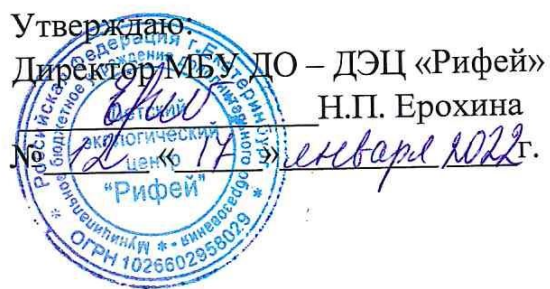 Утверждаю:
Директор МБУ ДО – ДЭЦ «Рифей»
Н.П. Ерохина
№ 12 « 17 » января 2022г.
Российская Федерация г. Екатеринбург
Муниципальное бюджетное учреждение дополнительного образования
детский
экологический
центр
"Рифей"
ОГРН 1026602958029